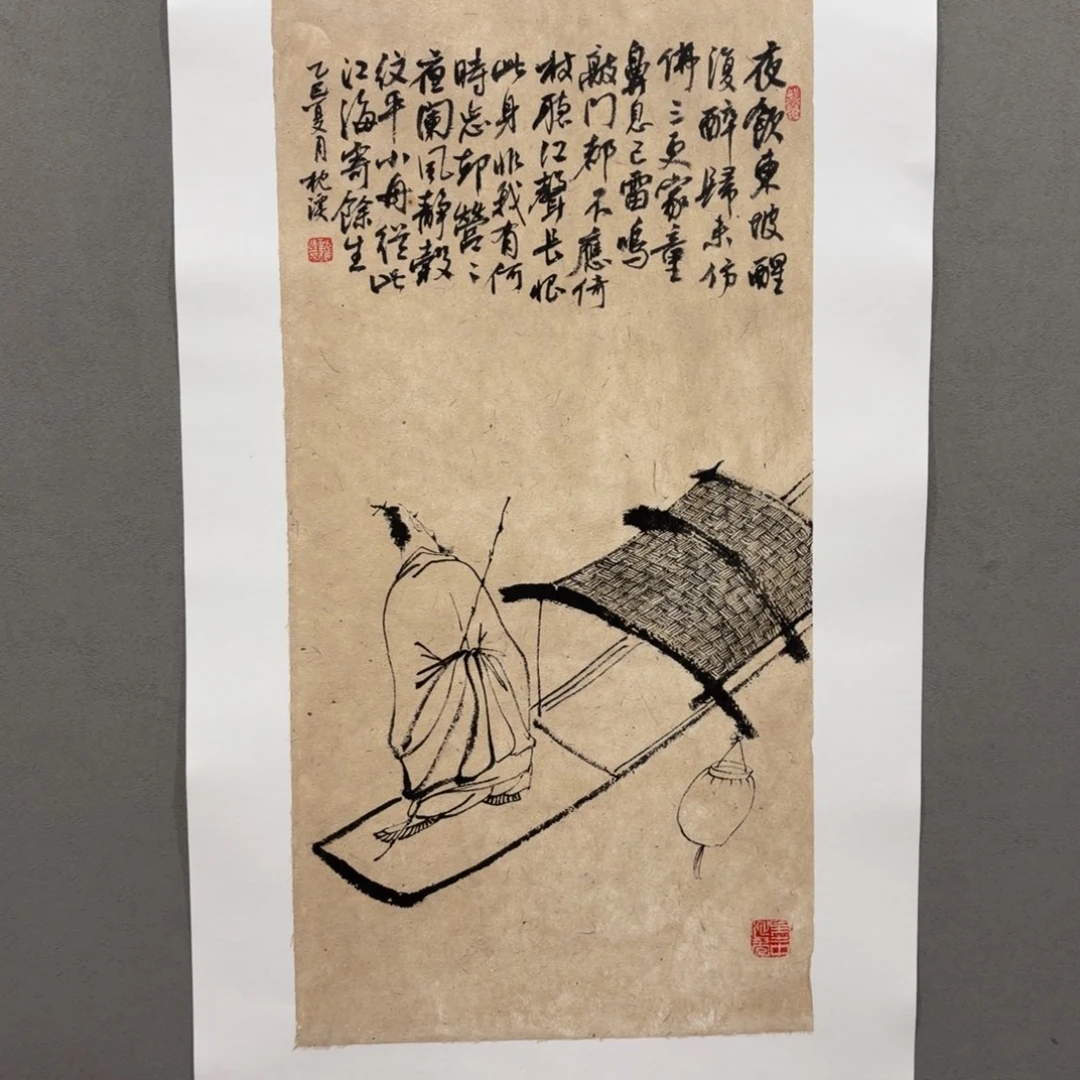 夜飲東坡醒
復醉歸来仿
佛三更家童
鼻息已雷鳴
敲門都不應倚
杖聽江聲長恨
此身非我有何
時忘却營〻
夜闌風靜縠
紋平小舟從此
江海寄餘生
乙巳夏月枕溪